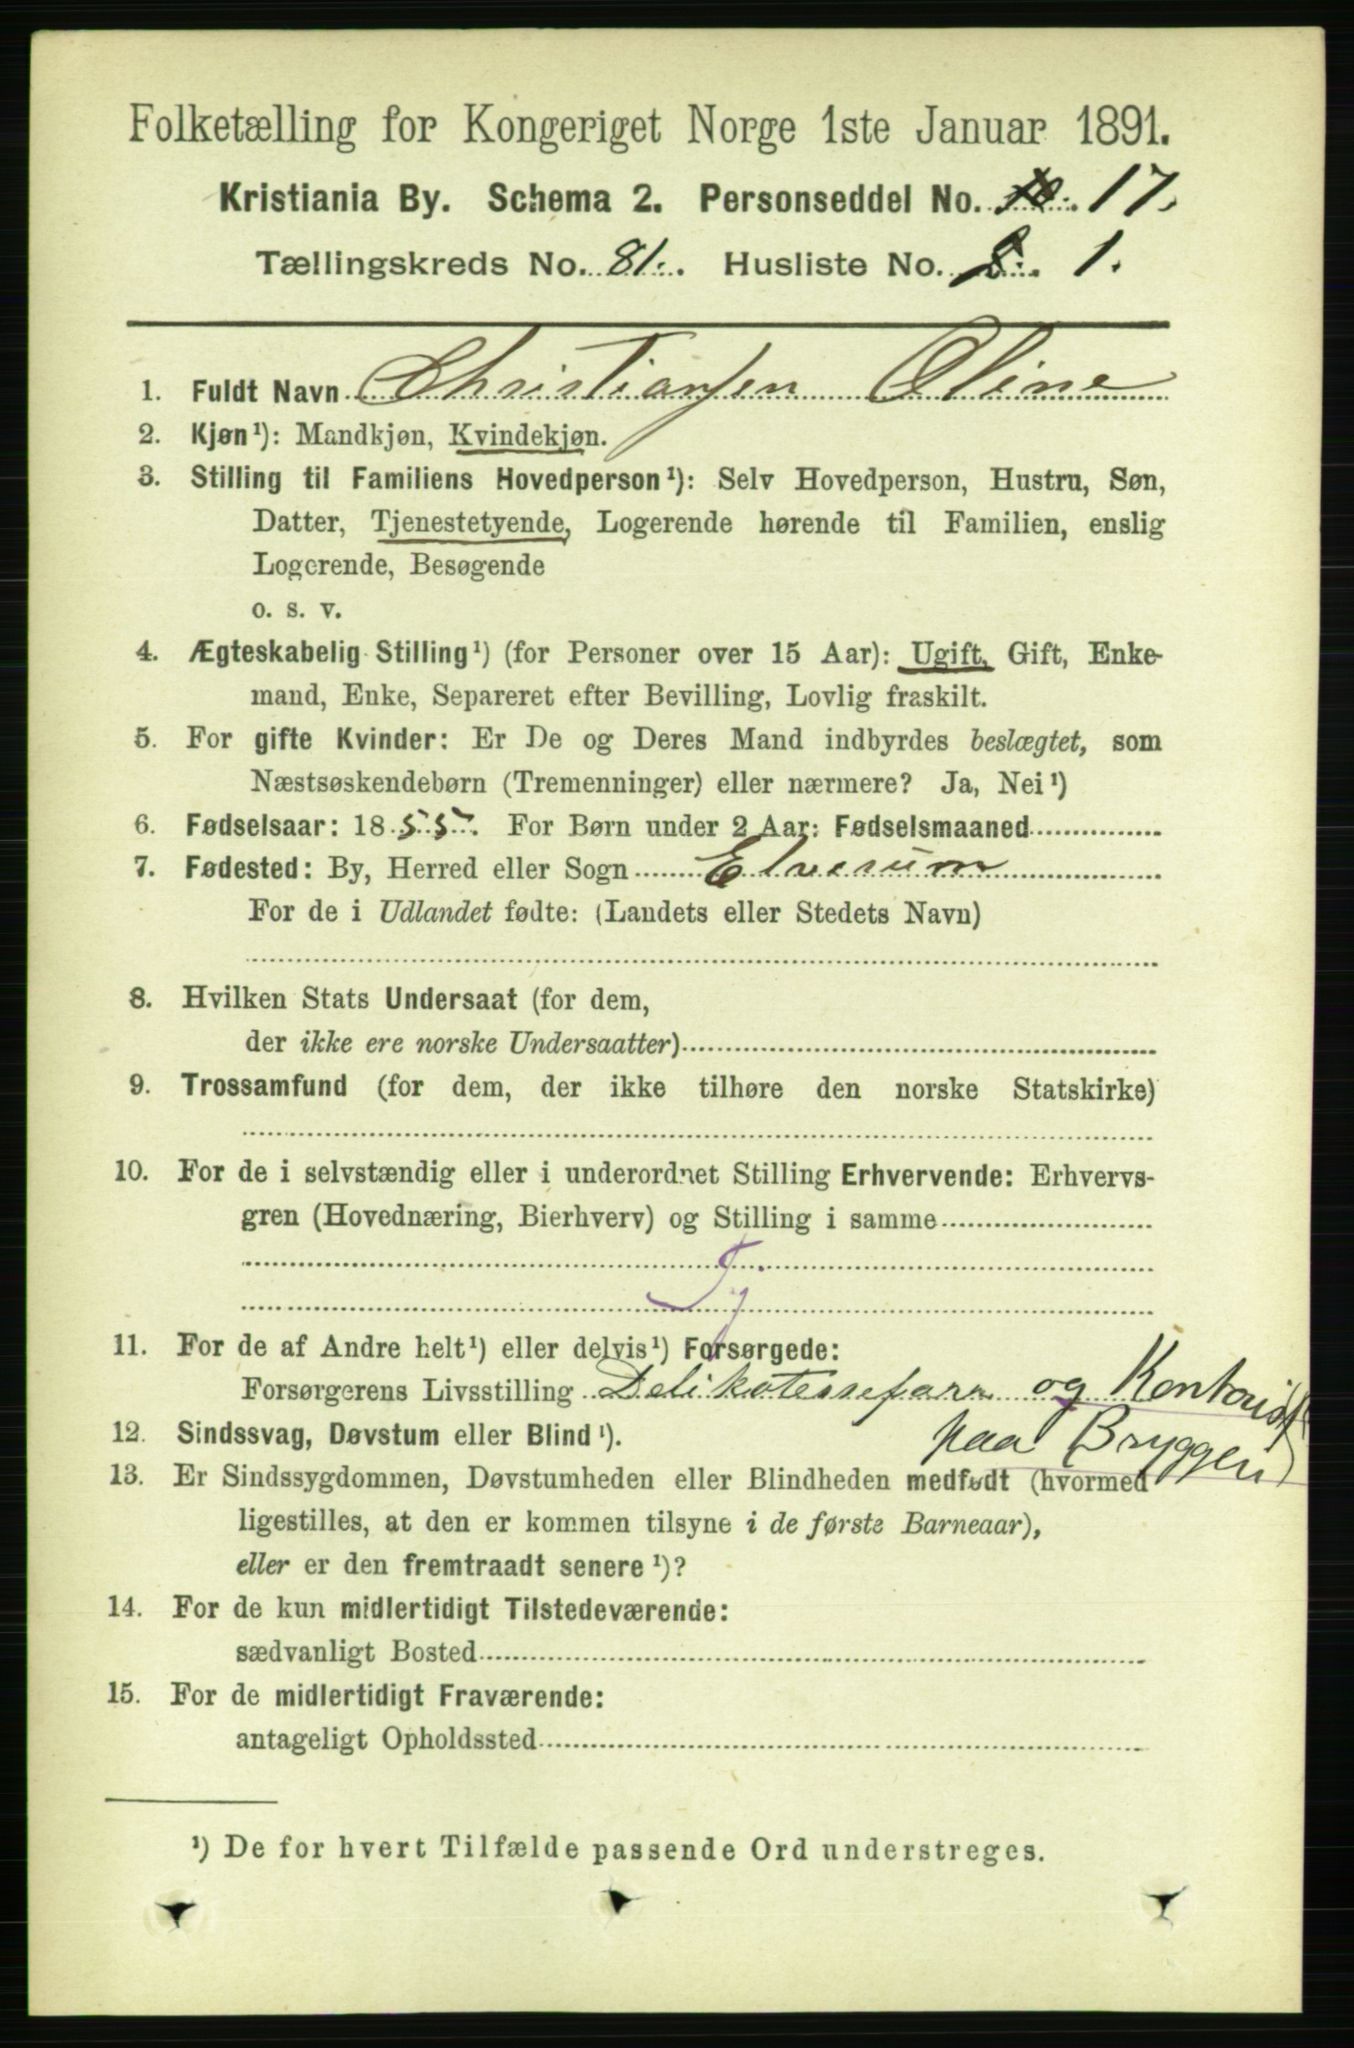 Folketælling for Kongeriget Norge 1ste Januar 1891.
Kristiania By. Schema 2. Personseddel No. 17.
Tællingskreds No. 81. Husliste No. 8. 1.
1. Fuldt Navn Christiansen Oline
2. Kjøn¹): Mandkjøn, Kvindekjøn.
3. Stilling til Familiens Hovedperson¹): Selv Hovedperson, Hustru, Søn,
Datter, Tjenestetyende, Logerende hørende til Familien, enslig
Logerende, Besøgende
o. s. v.
4. Ægteskabelig Stilling¹) (for Personer over 15 Aar): Ugift, Gift, Enke-
mand, Enke, Separeret efter Bevilling, Lovlig fraskilt.
5. For gifte Kvinder: Er De og Deres Mand indbyrdes beslægtet, som
Næstsøskendebørn (Tremenninger) eller nærmere? Ja, Nei¹)
6. Fødselsaar: 1855. For Børn under 2 Aar: Fødselsmaaned
7. Fødested: By, Herred eller Sogn Elverum
For de i Udlandet fødte: (Landets eller Stedets Navn)
8. Hvilken Stats Undersaat (for dem,
der ikke ere norske Undersaatter)
9. Trossamfund (for dem, der ikke tilhøre den norske Statskirke)
10. For de i selvstændig eller i underordnet Stilling Erhvervende: Erhvervs-
gren (Hovednæring, Bierhverv) og Stilling i samme
Tj
11. For de af Andre helt¹) eller delvis¹) Forsørgede:
Forsørgerens Livsstilling Delikatesseforr og Kontorist
paa Bryggeri
12. Sindssvag, Døvstum eller Blind¹).
13. Er Sindssygdommen, Døvstumheden eller Blindheden medfødt (hvormed
ligestilles, at den er kommen tilsyne i de første Barneaar),
eller er den fremtraadt senere¹)?
14. For de kun midlertidigt Tilstedeværende:
sædvanligt Bosted
15. For de midlertidigt Fraværende:
antageligt Opholdssted
¹) De for hvert Tilfælde passende Ord understreges.